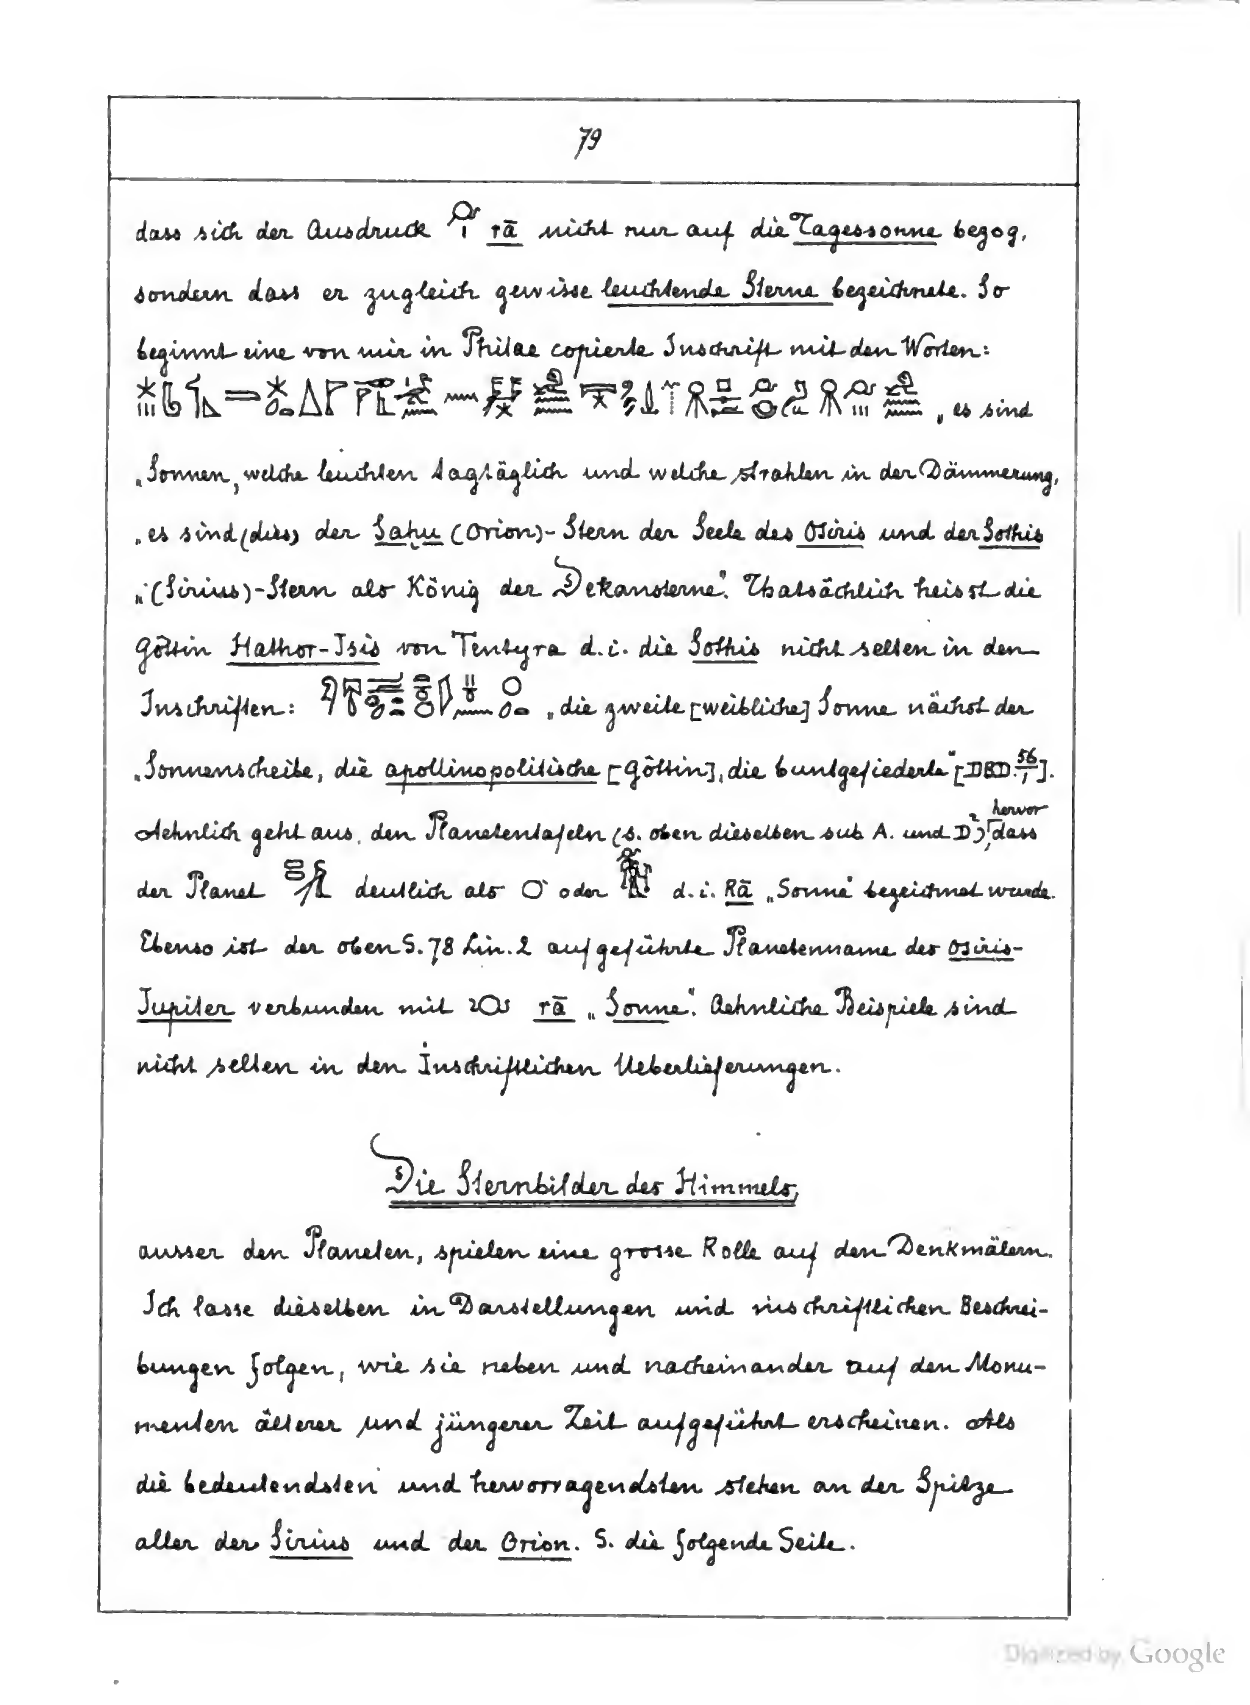 79
dass sich der Ausdruck rā nicht nur auf die Tagessonne bezog,
sondern dass er zugleich gewisse leuchtende Sterne bezeichnete. So
beginnt eine von mir in Philae copierte Inschrift mit den Worten:
„es sind
„Sonnen, welche leuchten tagtäglich und welche strahlen in der Dämmerung,
„es sind (dies) der Sahu (Orion)-Stern der Seele des Osiris und der Sothis
„(Sirius)-Stern als König der Dekansterne". Thatsächlich heisst die
Göttin Hathor-Isis von Tentyra d.i. die Sothis nicht selten in den
Inschriften: „die zweite [weibliche] Sonne nächst der
„Sonnenscheibe, die apollinopolitische [Göttin], die buntgefiederte" [DBD. 56/1].
Aehnlich geht aus den Planetentafeln (s. oben dieselben sub A. und D) hervor, dass
der Planet deutlich als oder d.i. Rā „Sonne" bezeichnet wurde.
Ebenso ist der oben S. 78 Lin. 2 aufgeführte Planetenname des Osiris-
Jupiter verbunden mit rā „Sonne". Aehnliche Beispiele sind
nicht selten in den Inschriftlichen Ueberlieferungen.
Die Sternbilder des Himmels,
ausser den Planeten, spielen eine grosse Rolle auf den Denkmälern.
Ich lasse dieselben in Darstellungen und inschriftlichen Beschrei-
bungen folgen, wie sie neben und nacheinander auf den Monu-
menten älterer und jüngerer Zeit aufgeführt erscheinen. Als
die bedeutendsten und hervorragendsten stehen an der Spitze
aller der Sirius und der Orion. S. die folgende Seite.
Digitized by Google